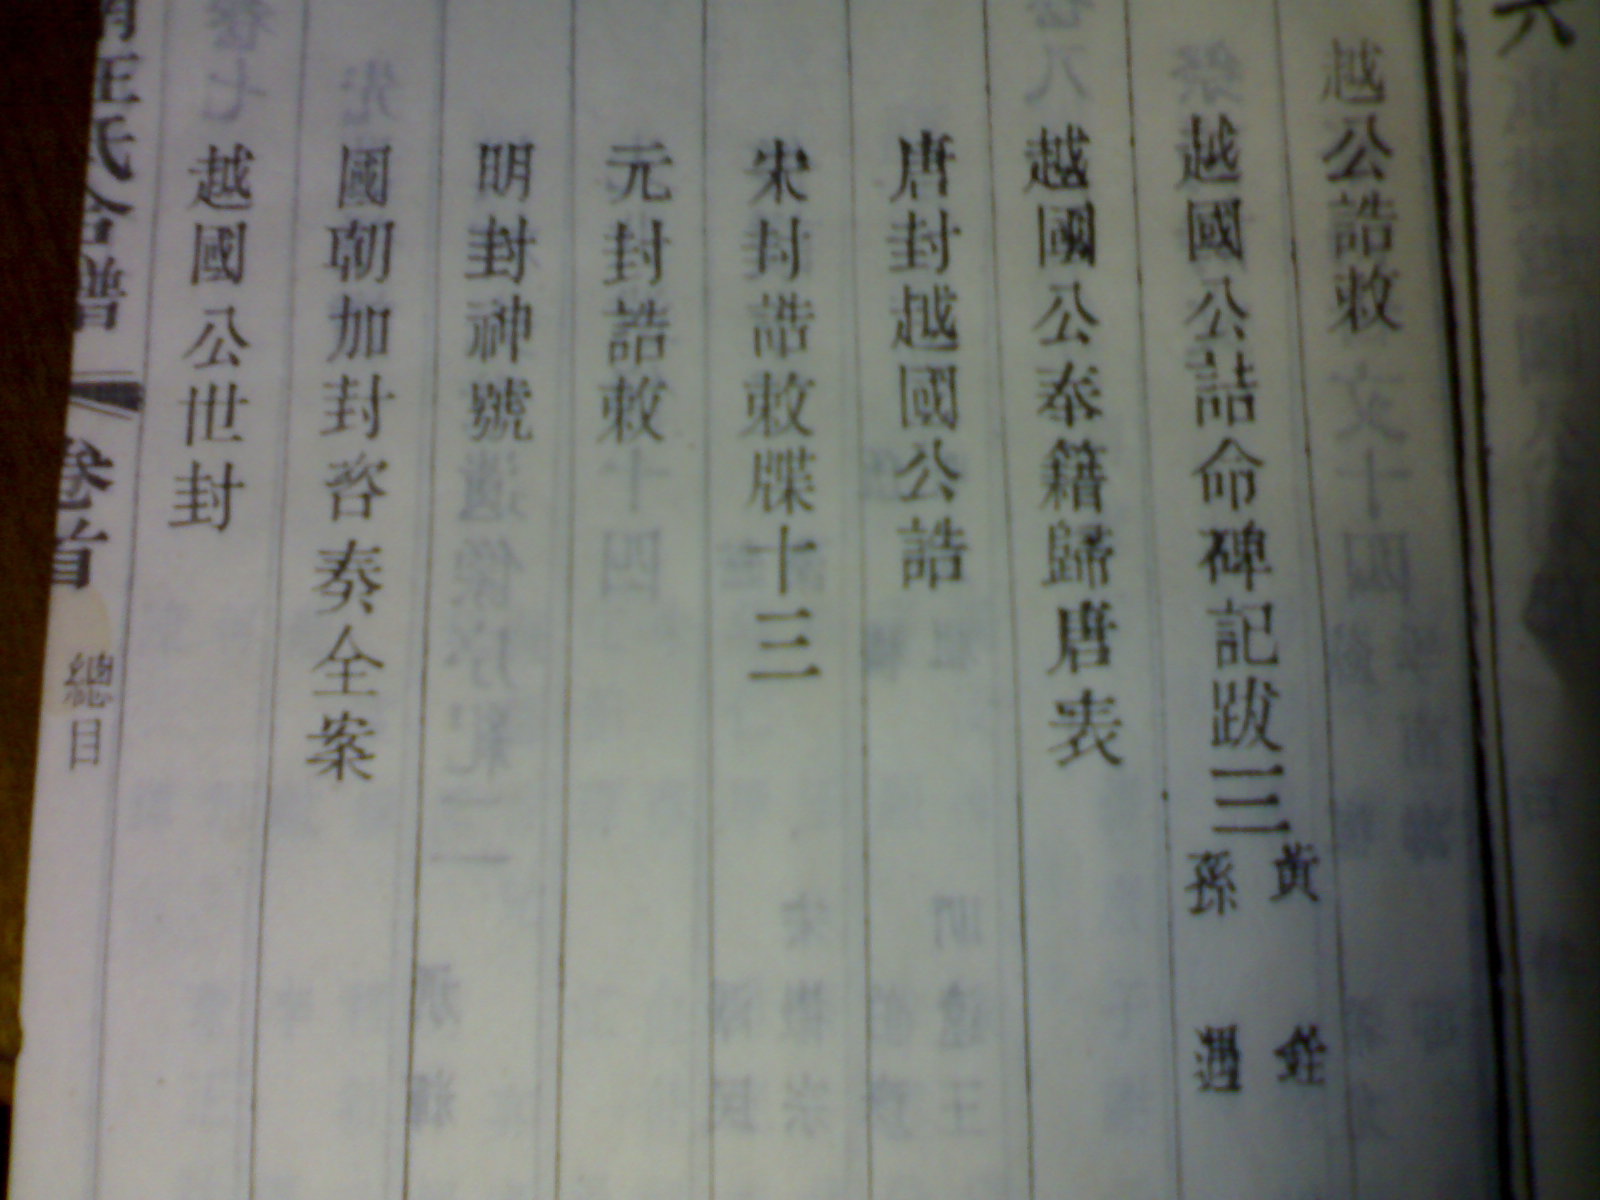 越公誥敕
越國公誥命碑記跋三
黃
孫
越國公奉籍歸唐表
唐封越國公誥
宋封誥敕牒十三
元封誥敕
明封神號
國朝加封咨奏全案
越國公世封
汪氏合譜 卷首 總目